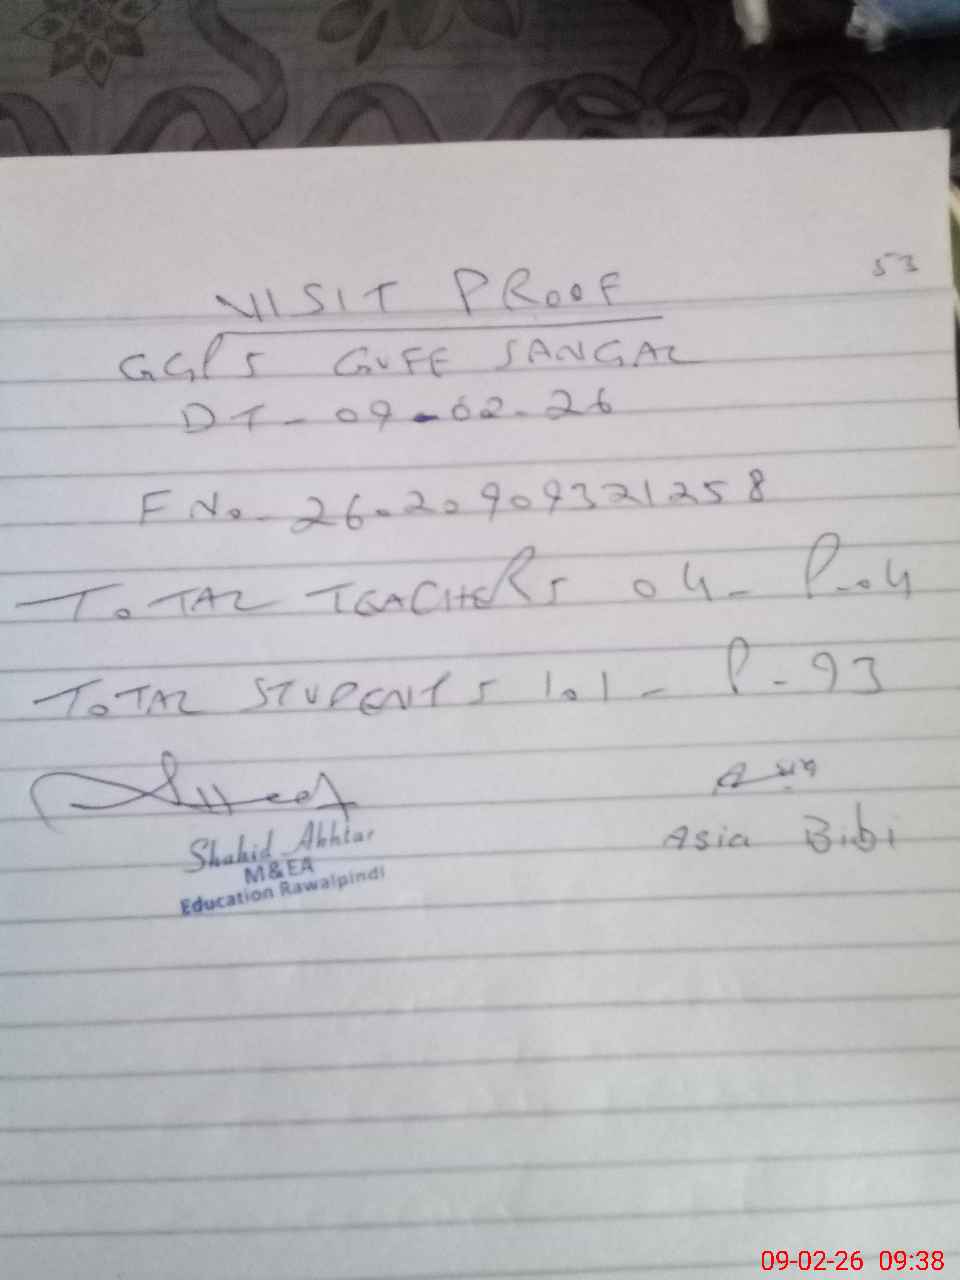 53
VISIT PROOF
GGPS GUFF SANGAL
DT - 09-02-26
F No- 26-20909321258
TOTAL TEACHERS 04 - P-04
TOTAL STUDENTS 101 - P-93
Shahid Akhtar
M&EA
Education Rawalpindi
Asia Bibi
09-02-26 09:38